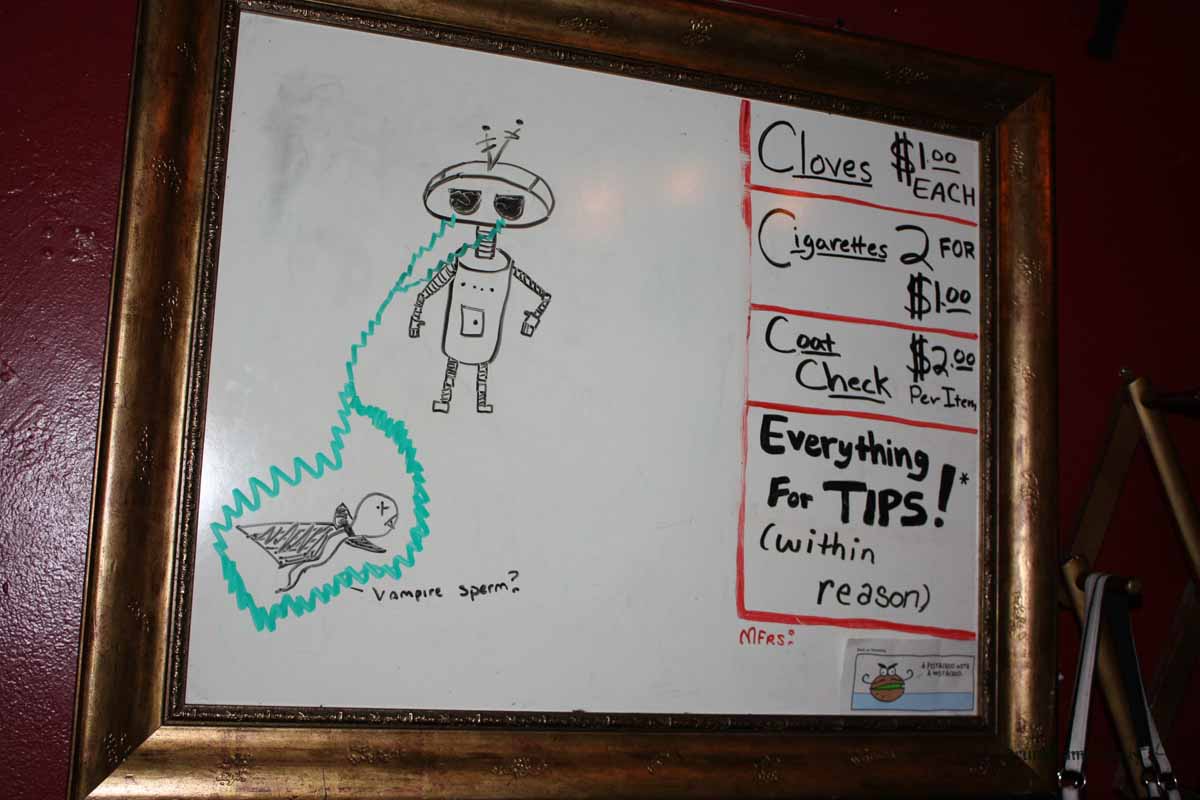 Cloves $1.00
EACH
Cigarettes 2 FOR
$1.00
Coat $2.00
Check Per Item
Everything
For TIPS!*
(within
reason)
Vampire sperm?
MFRS:
A PISTACHIO WITH
A MUSTACHIO.